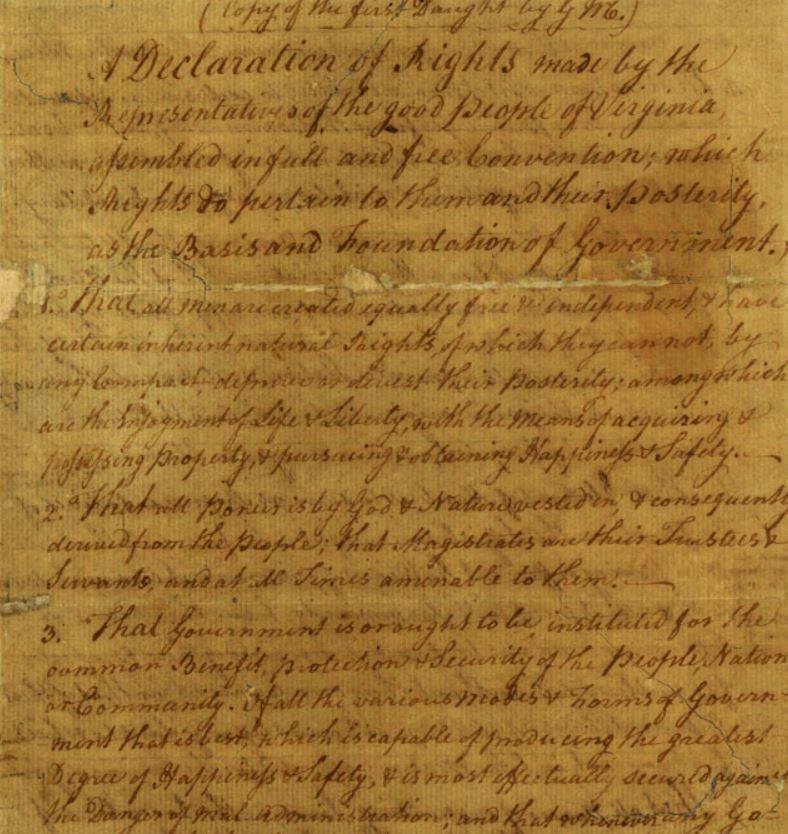 (Copy of the first Daught by G M.)
A Declaration of Rights made by the
Representatives of the good People of Virginia,
assembled in full and free Convention; which
Rights do pertain to them and their Posterity,
as the Basis and Foundation of Government.
1. That all men are created equally free & independent, & have
certain inherent natural Rights, of which they cannot, by
any Compact, deprive or divest their Posterity; among which
are the Enjoyment of Life & Liberty, with the Means of acquiring &
possessing Property, & pursueing & obtaining Happiness & Safety.
2. That all Power is by God & Nature vested in, & consequently
derived from the People; that Magistrates are their Trustees &
Servants, and at all Times amenable to them.
3. That Government is or ought to be, instituted for the
common Benefit, protection & Security of the People, Nation
or Community. Of all the various Modes & Forms of Govern-
ment that is best, which is capable of producing the greatest
Degree of Happiness & Safety, & is most effectually secured against
the Danger of mal-Administration; and that whenever any Go-